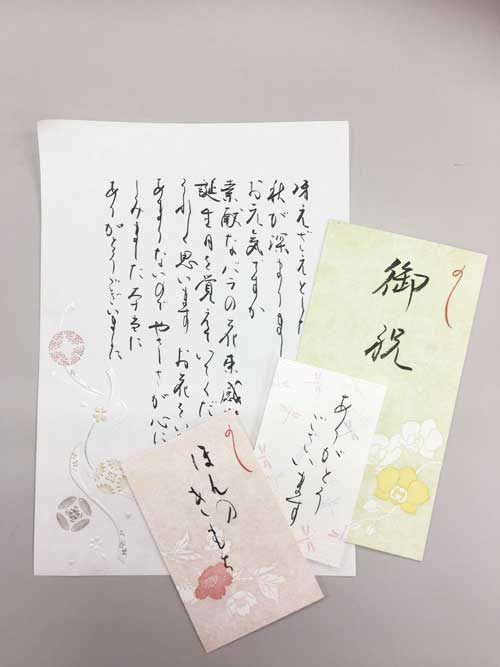 冴えざえとした
秋が深まりまし
お元気ですか
素敵なバラの花束感
誕生月を覚えていてくだ
うれしく思います お花をい
あまりないのでやさしさが心に
しみました 本当に
ありがとうございました
御祝
ありがとう
ございます
ほんの
きもち